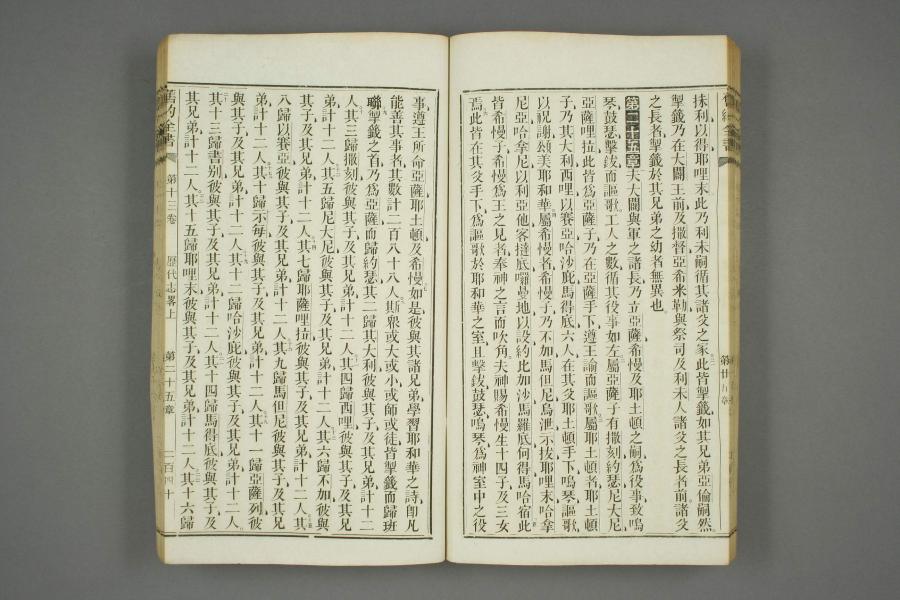 抹利以得耶哩末此乃利未嗣循其諸父之家此皆掣籤如其兄弟亞倫嗣然
掣籤乃在大闢王前及撒督亞希米勒與祭司及利未人諸父之長者前諸父
之長者掣籤於其兄弟之幼者無異也
第二十五章夫大闢與軍之諸長乃立亞薩希幔及耶土頓之嗣為役事致嗚
琴鼓瑟擊鈸而謳歌工人之數循其役事如左屬亞薩子有撒刻約瑟尼大尼
亞薩哩拉此皆為亞薩子乃在亞薩手下遵王諭而謳歌屬耶土頓者耶土頓
子乃其大利西哩以賽亞哈沙庇馬得底六人在其父耶土頓手下嗚琴謳歌
以祝謝頌美耶和華屬希幔者希幔子乃不加馬但尼烏泄示拔耶哩末哈拿
尼亞哈拿尼以利亞他客撻底囉曼地以設約比加沙馬羅底何得馬哈宿此
皆希幔子希幔為王之見者奉神之言而吹角夫神賜希幔生十四子及三女
焉此皆在其父手下為謳歌於耶和華之室且擊鈸鼓瑟嗚琴為神室中之役
事遵王所命亞薩耶土頓及希幔如是彼與其諸兄弟學習耶和華之詩即凡
能善其事者其數計二百八十八人斯衆或大或小或師或徒皆掣籤而歸班
聯掣籤之首乃為亞薩而歸約瑟其二歸其大利彼與其子及其兄弟計十二
人其三歸撒刻彼與其子及其兄弟計十二人其四歸西哩彼與其子及其兄
弟計十二人其五歸尼大尼彼與其子及其兄弟計十二人其六歸不加彼與
其子及其兄弟計十二人其七歸耶薩哩拉彼與其子及其兄弟計十二人其
八歸以賽亞彼與其子及其兄弟計十二人其九歸馬但尼彼與其子及其兄
弟計十二人其十歸示每彼與其子及其兄弟計十二人其十一歸亞薩列彼
與其子及其兄弟計十二人其十二歸哈沙庇彼與其子及其兄弟計十二人
其十三歸書別彼與其子及其兄弟計十二人其十四歸馬得底彼與其子及
其兄弟計十二人其十五歸耶哩末彼與其子及其兄弟計十二人其十六歸
舊約全書 第十三卷 歷代志畧上 第二十五章 二百四十